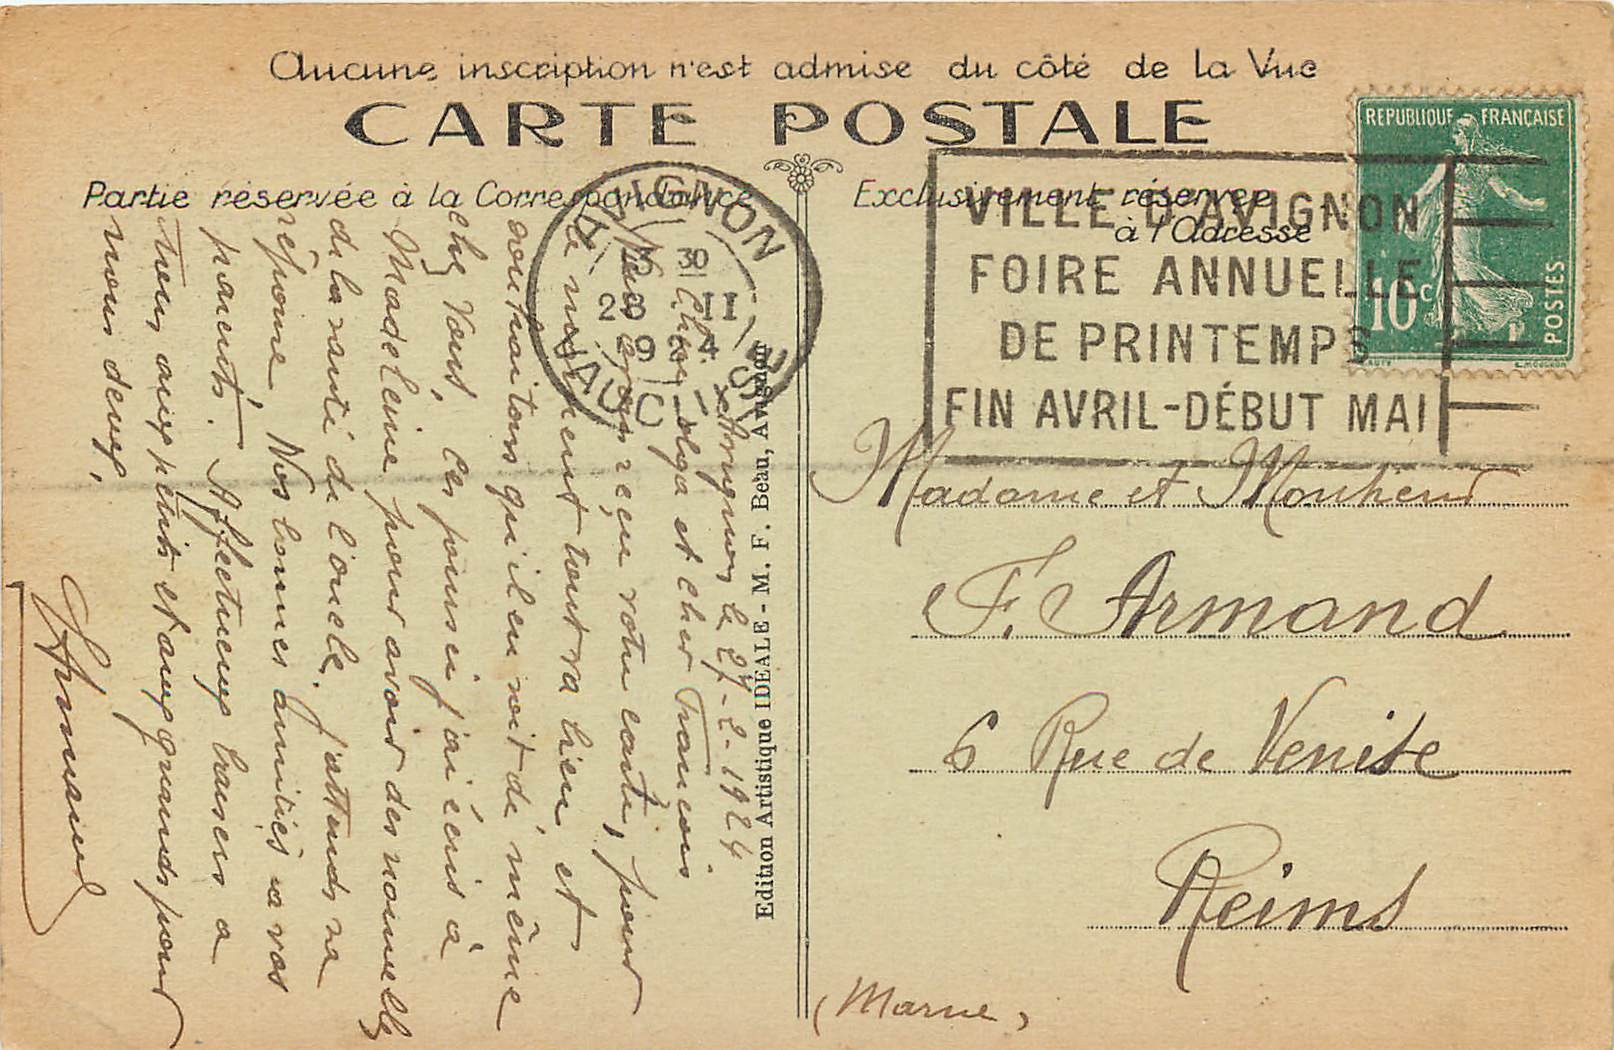 Aucune inscription n'est admise du côté de la Vue
CARTE POSTALE
Partie réservée à la Correspondance
Exclusivement réservée
à l'Adresse
REPUBLIQUE FRANÇAISE
10c
POSTES
AVIGNON
30
28 II
VAUCLUSE
VILLE D'AVIGNON
FOIRE ANNUELLE
DE PRINTEMPS
FIN AVRIL-DÉBUT MAI
Avignon le 27-2-1924
Chère Olga et cher François
Nous avons reçu votre carte, pour
le moment tout va bien et
souhaitons qu'il en soit de même
chez vous, ces jours-ci j'ai écris à
Madeleine pour avoir des nouvelles
de la santé de l'oncle. J'attends sa
réponse. Nos bonnes amitiés à vos
parents. Affectueux baisers à
tous aux petits et aux grands pour
nous deux.
Edition Artistique IDEALE - M. F. Beau, Avignon
Madame et Monsieur
F. Armand
6 Rue de Venise
Reims
(Marne)